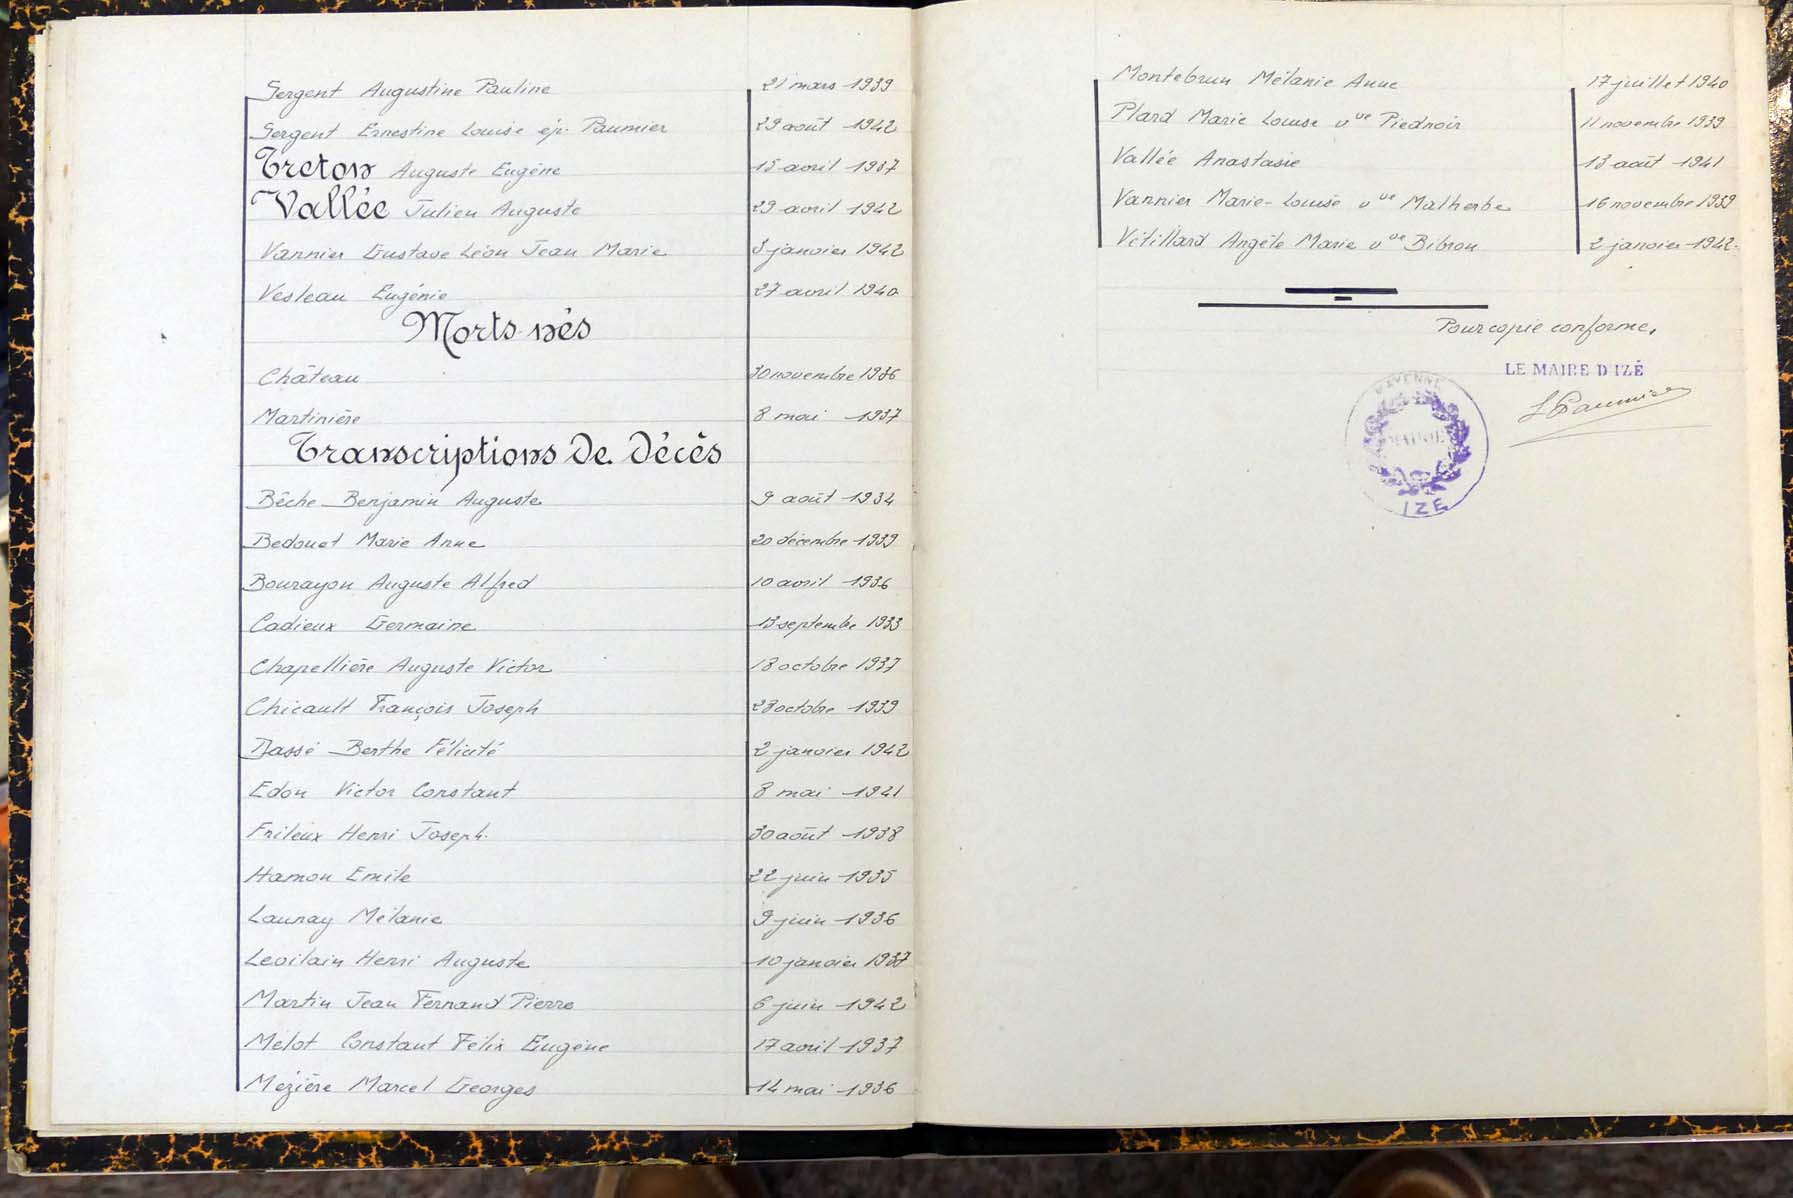 Sergent Augustine Pauline 21 mars 1939
Sergent Ernestine Louise ép. Paumier 29 août 1942
Treton Auguste Eugène 15 avril 1937
Vallée Julien Auguste 29 avril 1942
Vannier Gustave Léon Jean Marie 3 janvier 1942
Vesleau Eugénie 27 avril 1940
Morts-nés
Château 30 novembre 1936
Martinière 8 mai 1937
Transcriptions de décès
Bêche Benjamin Auguste 9 août 1934
Bedouet Marie Anne 20 décembre 1939
Bourayon Auguste Alfred 10 avril 1936
Cadieux Germaine 13 septembre 1933
Chapellière Auguste Victor 18 octobre 1937
Chicault François Joseph 28 octobre 1939
Dassé Berthe Félicité 2 janvier 1942
Edon Victor Constant 8 mai 1941
Frileux Henri Joseph. 30 août 1938
Hamon Emile 22 juin 1935
Launay Mélanie 9 juin 1936
Levilain Henri Auguste 10 janvier 1937
Martin Jean Fernand Pierre 6 juin 1942
Mélot Constant Félix Eugène 17 avril 1937
Mézière Marcel Georges 14 mai 1936
Montebrun Mélanie Anne 17 juillet 1940
Plard Marie Louise vve Piednoir 11 novembre 1939
Vallée Anastasie 13 août 1941
Vannier Marie-Louise vve Malherbe 16 novembre 1939
Vétillard Angèle Marie vve Bibron 2 janvier 1942.
Pour copie conforme,
LE MAIRE D'IZÉ
MAYENNE
MAIRIE
IZÉ